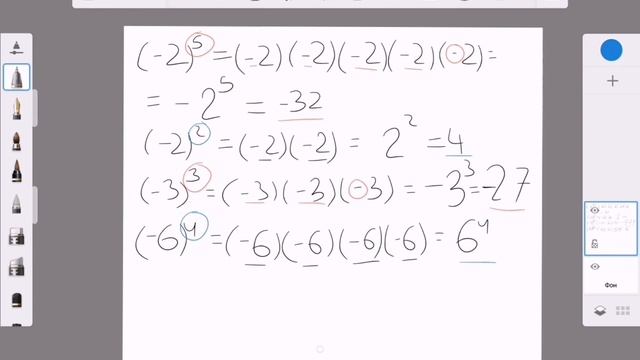 (-2)⁵ = (-2)(-2)(-2)(-2)(-2) =
= -2⁵ = -32
(-2)² = (-2)(-2) = 2² = 4
(-3)³ = (-3)(-3)(-3) = -3³ = -27
(-6)⁴ = (-6)(-6)(-6)(-6) = 6⁴
Фон